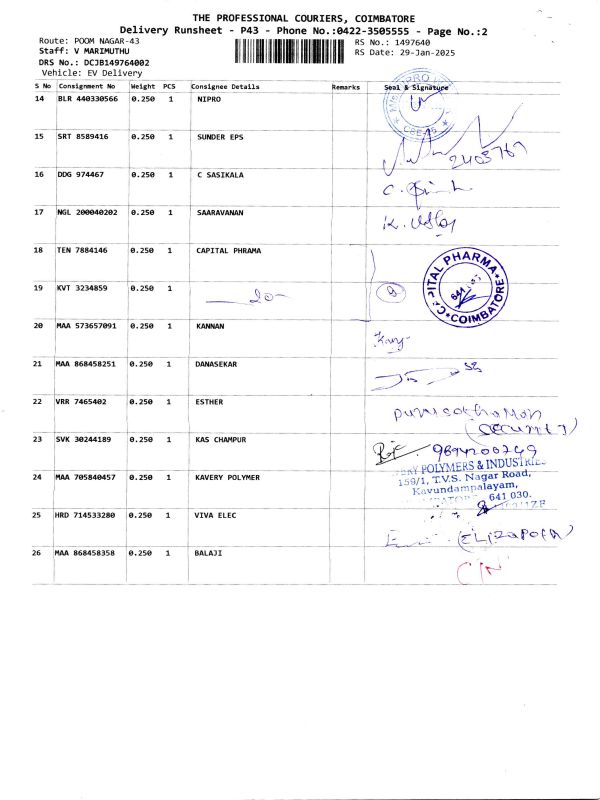 THE PROFESSIONAL COURIERS, COIMBATORE
Delivery Runsheet - P43 - Phone No.:0422-3505555 - Page No.:2
Route: POOM NAGAR-43
RS No.: 1497640
Staff: V MARIMUTHU
RS Date: 29-Jan-2025
DRS No.: DCJB149764002
Vehicle: EV Delivery
S No Consignment No Weight PCS Consignee Details Remarks Seal & Signature
14 BLR 440330566 0.250 1 NIPRO
15 SRT 8589416 0.250 1 SUNDER EPS
16 DDG 974467 0.250 1 C SASIKALA
17 NGL 200040202 0.250 1 SAARAVANAN
18 TEN 7884146 0.250 1 CAPITAL PHRAMA
CAPITAL PHARMA
COIMBATORE
19 KVT 3234859 0.250 1
20 MAA 573657091 0.250 1 KANNAN
21 MAA 868458251 0.250 1 DANASEKAR
22 VRR 7465402 0.250 1 ESTHER
(SECURITY)
23 SVK 30244189 0.250 1 KAS CHAMPUR
24 MAA 705840457 1 0.250 KAVERY POLYMER
POLYMERS & INDUSTRIES
159/1, T.V.S. Nagar Road,
Kavundampalayam,
641 030.
25 HRD 714533280 0.250 1 VIVA ELEC
26 MAA 868458358 0.250 1 BALAJI